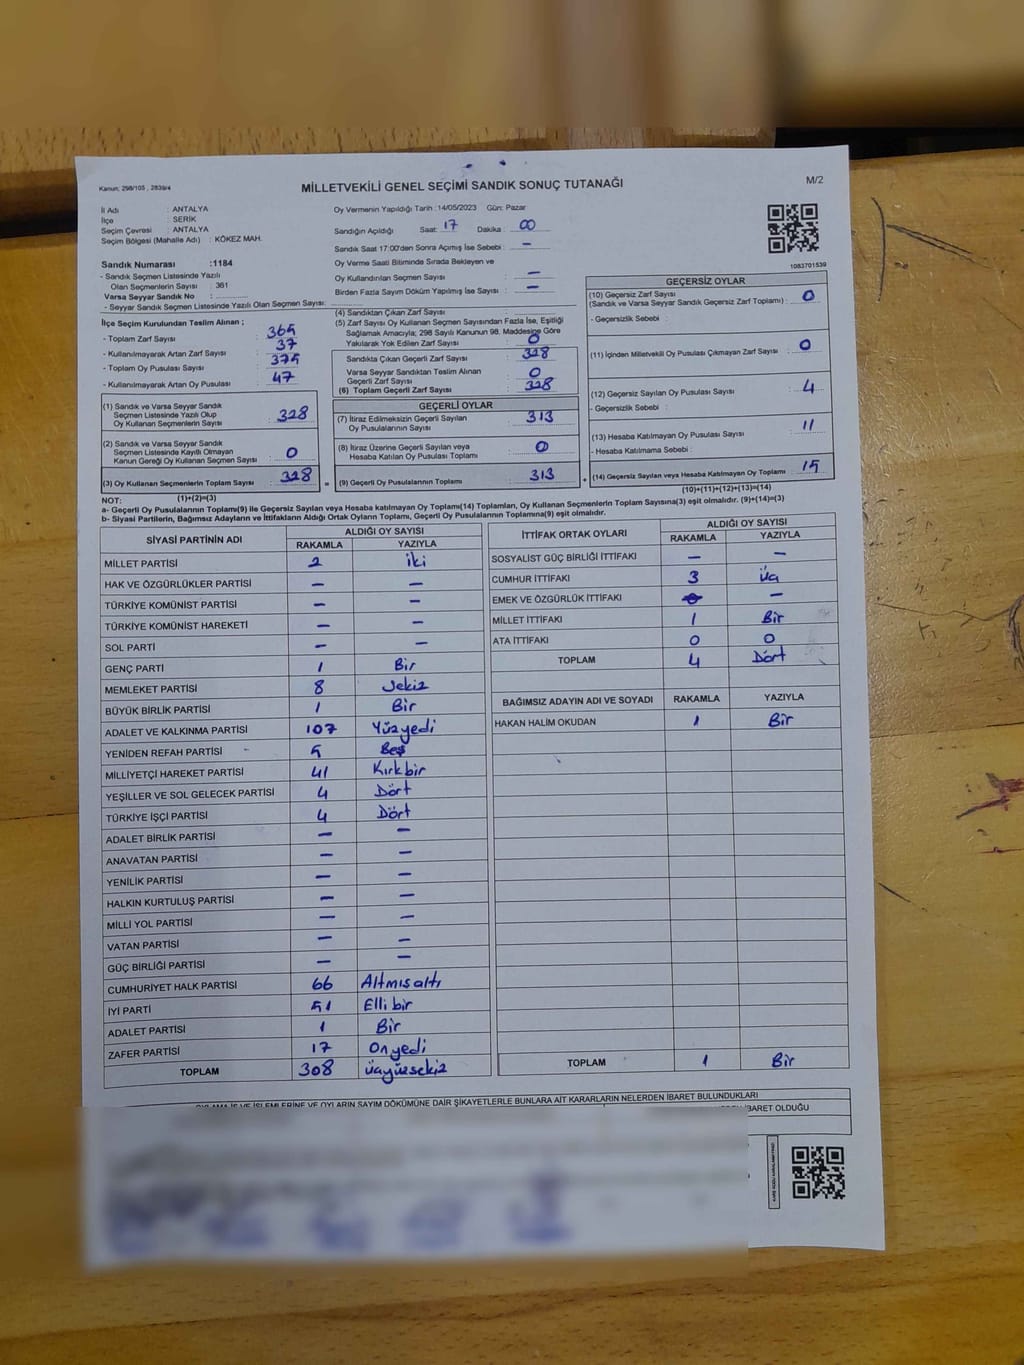 Kanun: 298/105 , 2839/4
MİLLETVEKİLİ GENEL SEÇİMİ SANDIK SONUÇ TUTANAĞI
M/2
İl Adı : ANTALYA
İlçe : SERİK
Seçim Çevresi : ANTALYA
Seçim Bölgesi (Mahalle Adı) : KÖKEZ MAH.
Sandık Numarası :1184
- Sandık Seçmen Listesinde Yazılı
Olan Seçmenlerin Sayısı : 361
Varsa Seyyar Sandık No :
- Seyyar Sandık Seçmen Listesinde Yazılı Olan Seçmen Sayısı:
İlçe Seçim Kurulundan Teslim Alınan ;
- Toplam Zarf Sayısı : 365
- Kullanılmayarak Artan Zarf Sayısı : 37
- Toplam Oy Pusulası Sayısı : 375
- Kullanılmayarak Artan Oy Pusulası : 47
(1) Sandık ve Varsa Seyyar Sandık
Seçmen Listesinde Yazılı Olup
Oy Kullanan Seçmenlerin Sayısı : 328
(2) Sandık ve Varsa Seyyar Sandık
Seçmen Listesinde Kayıtlı Olmayan
Kanun Gereği Oy Kullanan Seçmen Sayısı : 0
(3) Oy Kullanan Seçmenlerin Toplam Sayısı : 328
Oy Vermenin Yapıldığı Tarih : 14/05/2023 Gün: Pazar
Sandığın Açıldığı Saat: 17 Dakika : 00
Sandık Saat 17:00'den Sonra Açımış İse Sebebi : –
Oy Verme Saati Bitiminde Sırada Bekleyen ve
Oy Kullandırılan Seçmen Sayısı : –
Birden Fazla Sayım Döküm Yapılmış İse Sayısı : –
(4) Sandıktan Çıkan Zarf Sayısı :
(5) Zarf Sayısı Oy Kullanan Seçmen Sayısından Fazla İse, Eşitliği
Sağlamak Amacıyla; 298 Sayılı Kanunun 98. Maddesine Göre
Yakılarak Yok Edilen Zarf Sayısı : 0
Sandıkta Çıkan Geçerli Zarf Sayısı : 328
Varsa Seyyar Sandıktan Teslim Alınan
Geçerli Zarf Sayısı : 0
(6) Toplam Geçerli Zarf Sayısı : 328
GEÇERLİ OYLAR
(7) İtiraz Edilmeksizin Geçerli Sayılan
Oy Pusulalarının Sayısı : 313
(8) İtiraz Üzerine Geçerli Sayılan veya
Hesaba Katılan Oy Pusulası Toplamı : 0
= (9) Geçerli Oy Pusulalarının Toplamı : 313
1083701539
GEÇERSİZ OYLAR
(10) Geçersiz Zarf Sayısı
(Sandık ve Varsa Seyyar Sandık Geçersiz Zarf Toplamı) : 0
- Geçersizlik Sebebi :
(11) İçinden Milletvekili Oy Pusulası Çıkmayan Zarf Sayısı : 0
(12) Geçersiz Sayılan Oy Pusulası Sayısı : 4
- Geçersizlik Sebebi :
(13) Hesaba Katılmayan Oy Pusulası Sayısı : 11
- Hesaba Katılmama Sebebi :
+ (14) Geçersiz Sayılan veya Hesaba Katılmayan Oy Toplamı : 15
NOT: (1)+(2)=(3)
(10)+(11)+(12)+(13)=(14)
a- Geçerli Oy Pusulalarının Toplamı(9) ile Geçersiz Sayılan veya Hesaba katılmayan Oy Toplamı(14) Toplamları, Oy Kullanan Seçmenlerin Toplam Sayısına(3) eşit olmalıdır. (9)+(14)=(3)
b- Siyasi Partilerin, Bağımsız Adayların ve İttifakların Aldığı Ortak Oyların Toplamı, Geçerli Oy Pusulalarının Toplamına(9) eşit olmalıdır.
SİYASİ PARTİNİN ADI ALDIĞI OY SAYISI
RAKAMLA YAZIYLA
MİLLET PARTİSİ 2 iki
HAK VE ÖZGÜRLÜKLER PARTİSİ – –
TÜRKİYE KOMÜNİST PARTİSİ – –
TÜRKİYE KOMÜNİST HAREKETİ – –
SOL PARTİ – –
GENÇ PARTİ 1 Bir
MEMLEKET PARTİSİ 8 Sekiz
BÜYÜK BİRLİK PARTİSİ 1 Bir
ADALET VE KALKINMA PARTİSİ 107 Yüzyedi
YENİDEN REFAH PARTİSİ 5 Beş
MİLLİYETÇİ HAREKET PARTİSİ 41 Kırkbir
YEŞİLLER VE SOL GELECEK PARTİSİ 4 Dört
TÜRKİYE İŞÇİ PARTİSİ 4 Dört
ADALET BİRLİK PARTİSİ – –
ANAVATAN PARTİSİ – –
YENİLİK PARTİSİ – –
HALKIN KURTULUŞ PARTİSİ – –
MİLLİ YOL PARTİSİ – –
VATAN PARTİSİ – –
GÜÇ BİRLİĞİ PARTİSİ – –
CUMHURİYET HALK PARTİSİ 66 Altmısaltı
İYİ PARTİ 51 Elli bir
ADALET PARTİSİ 1 Bir
ZAFER PARTİSİ 17 Onyedi
TOPLAM 308 üçyüzsekiz
İTTİFAK ORTAK OYLARI ALDIĞI OY SAYISI
RAKAMLA YAZIYLA
SOSYALİST GÜÇ BİRLİĞİ İTTİFAKI – –
CUMHUR İTTİFAKI 3 Üç
EMEK VE ÖZGÜRLÜK İTTİFAKI –
MİLLET İTTİFAKI 1 Bir
ATA İTTİFAKI 0 0
TOPLAM 4 Dört
BAĞIMSIZ ADAYIN ADI VE SOYADI RAKAMLA YAZIYLA
HAKAN HALİM OKUDAN 1 Bir
TOPLAM 1 Bir
OYLAMA İŞ VE İŞLEMLERİNE VE OYLARIN SAYIM DÖKÜMÜNE DAİR ŞİKAYETLERLE BUNLARA AİT KARARLARIN NELERDEN İBARET BULUNDUKLARI
İBARET OLDUĞU